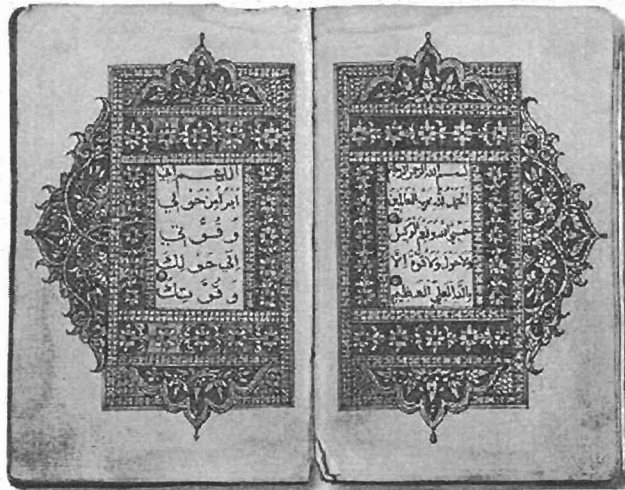 بسم الله الرحمن الرحيم
الحمد لله رب العالمين
حسبي الله ونعم الوكيل
ولا حول ولا قوة الا
بالله العلي العظيم
اللهم اني
ابرأ من حولي
وقوتي
الى حولك
وقوتك